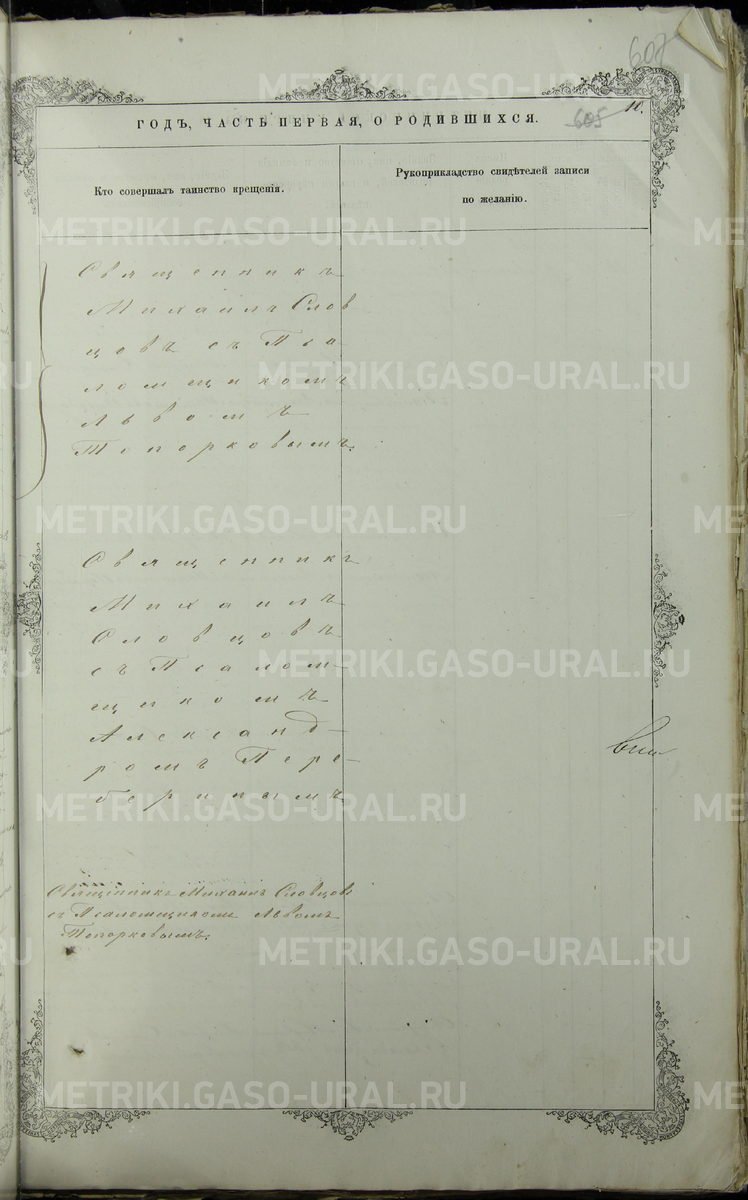 607
605
11.
ГОДЪ, ЧАСТЬ ПЕРВАЯ, О РОДИВШИХСЯ.
Кто совершалъ таинство крещенія.
Рукоприкладство свидѣтелей записи
по желанію.
Священникъ
Михаилъ Слов
цовъ съ Пса
ломщикомъ
Львомъ
Топорковымъ.
Священникъ
Михаилъ
Словцовъ
съ Псалом-
щикомъ
Александ-
ромъ Пере-
беринымъ
Священникъ Михаилъ Словцовъ
съ Псаломщикомъ Львомъ
Топорковымъ.
METRIKI.GASO-URAL.RU